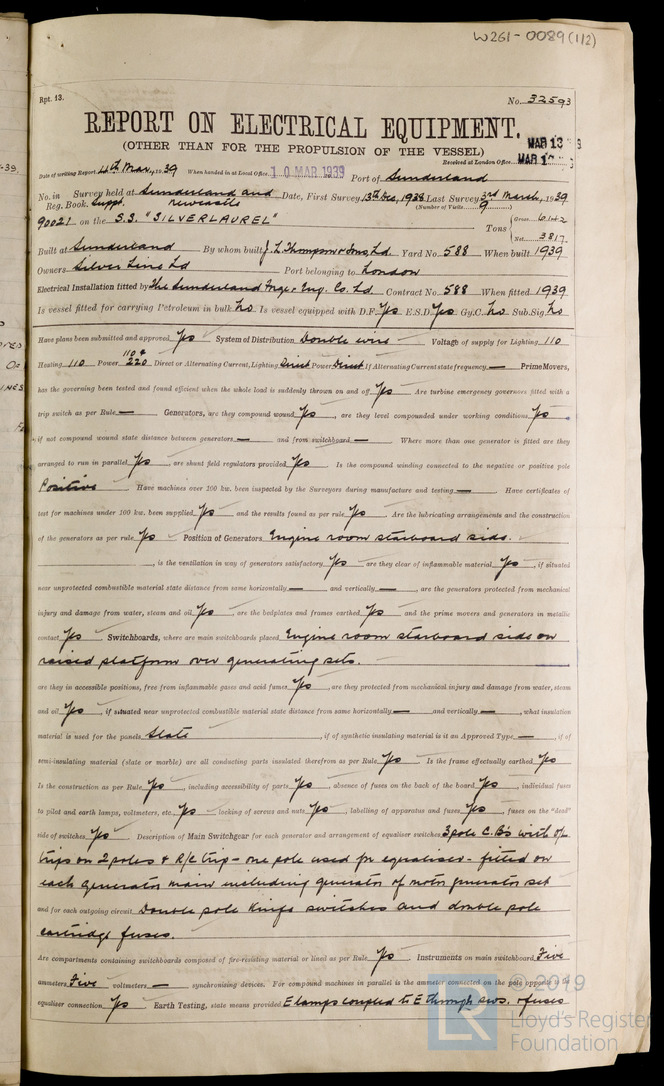 W261-0089(1/2)
Rpt. 13.
No. 32593
REPORT ON ELECTRICAL EQUIPMENT.
(OTHER THAN FOR THE PROPULSION OF THE VESSEL)
MAR 13
Received at London Office
MAR 1
Date of writing Report 4th Mar, 1939 When handed in at Local Office 10 MAR. 1939 Port of Sunderland
No. in Reg. Book. Survey held at Sunderland and Newcastle Date, First Survey 13th Dec, 1938 Last Survey 3rd March, 1939
Suppt. (Number of Visits 9)
90021 on the S.S. "SILVERLAUREL" Tons { Gross 6142
Net 3817
Built at Sunderland By whom built J. L. Thompson & Sons Ld Yard No. 588 When built 1939
Owners Silver Line Ld Port belonging to London
Electrical Installation fitted by The Sunderland Forge & Eng. Co. Ld Contract No. 588 When fitted 1939
Is vessel fitted for carrying Petroleum in bulk No Is vessel equipped with D.F. Yes E.S.D. Yes Gy.C. No Sub.Sig. No
Have plans been submitted and approved Yes System of Distribution Double wire Voltage of supply for Lighting 110
Heating 110 Power 110 & 220 Direct or Alternating Current, Lighting Direct Power Direct If Alternating Current state frequency — Prime Movers,
has the governing been tested and found efficient when the whole load is suddenly thrown on and off Yes Are turbine emergency governors fitted with a
trip switch as per Rule — Generators, are they compound wound Yes, are they level compounded under working conditions Yes,
if not compound wound state distance between generators — and from switchboard — Where more than one generator is fitted are they
arranged to run in parallel Yes, are shunt field regulators provided Yes Is the compound winding connected to the negative or positive pole
Positive Have machines over 100 kw. been inspected by the Surveyors during manufacture and testing — Have certificates of
test for machines under 100 kw. been supplied Yes and the results found as per rule Yes Are the lubricating arrangements and the construction
of the generators as per rule Yes Position of Generators Engine room starboard side.
, is the ventilation in way of generators satisfactory Yes are they clear of inflammable material Yes, if situated
near unprotected combustible material state distance from same horizontally — and vertically —, are the generators protected from mechanical
injury and damage from water, steam and oil Yes, are the bedplates and frames earthed Yes and the prime movers and generators in metallic
contact Yes Switchboards, where are main switchboards placed Engine room starboard side on
raised platform over generating sets.
are they in accessible positions, free from inflammable gases and acid fumes Yes, are they protected from mechanical injury and damage from water, steam
and oil Yes, if situated near unprotected combustible material state distance from same horizontally — and vertically —, what insulation
material is used for the panels Slate, if of synthetic insulating material is it an Approved Type —, if of
semi-insulating material (slate or marble) are all conducting parts insulated therefrom as per Rule Yes Is the frame effectually earthed Yes
Is the construction as per Rule Yes, including accessibility of parts Yes, absence of fuses on the back of the board Yes, individual fuses
to pilot and earth lamps, voltmeters, etc. Yes locking of screws and nuts Yes, labelling of apparatus and fuses Yes, fuses on the "dead"
side of switches Yes Description of Main Switchgear for each generator and arrangement of equaliser switches 3 pole C.B's with o/L
trips on 2 poles & R/C trip - one pole used for equaliser - fitted on
each generator main including generator of motor generator set
and for each outgoing circuit Double pole knife switches and double pole
cartridge fuses.
Are compartments containing switchboards composed of fire-resisting material or lined as per Rule Yes Instruments on main switchboard Five
ammeters Five voltmeters — synchronising devices. For compound machines in parallel is the ammeter connected on the pole opposite to the
equaliser connection Yes Earth Testing, state means provided E lamps coupled to E through sws. & fuses
© 2019
LR
Lloyd's Register
Foundation